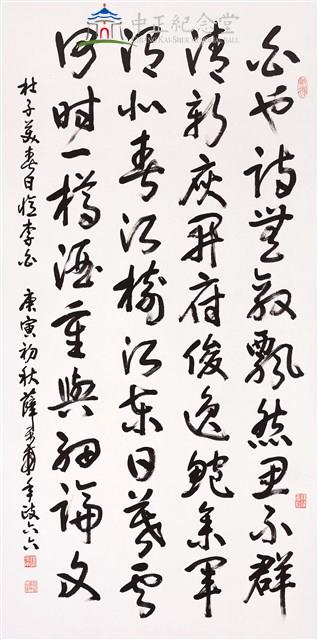 中正紀念堂
白也詩無敵飄然思不群
清新庾開府俊逸鮑參軍
渭北春天樹江東日暮雲
何時一樽酒重與細論文
杜子美春日憶李白 庚寅初秋薛平南年政六六